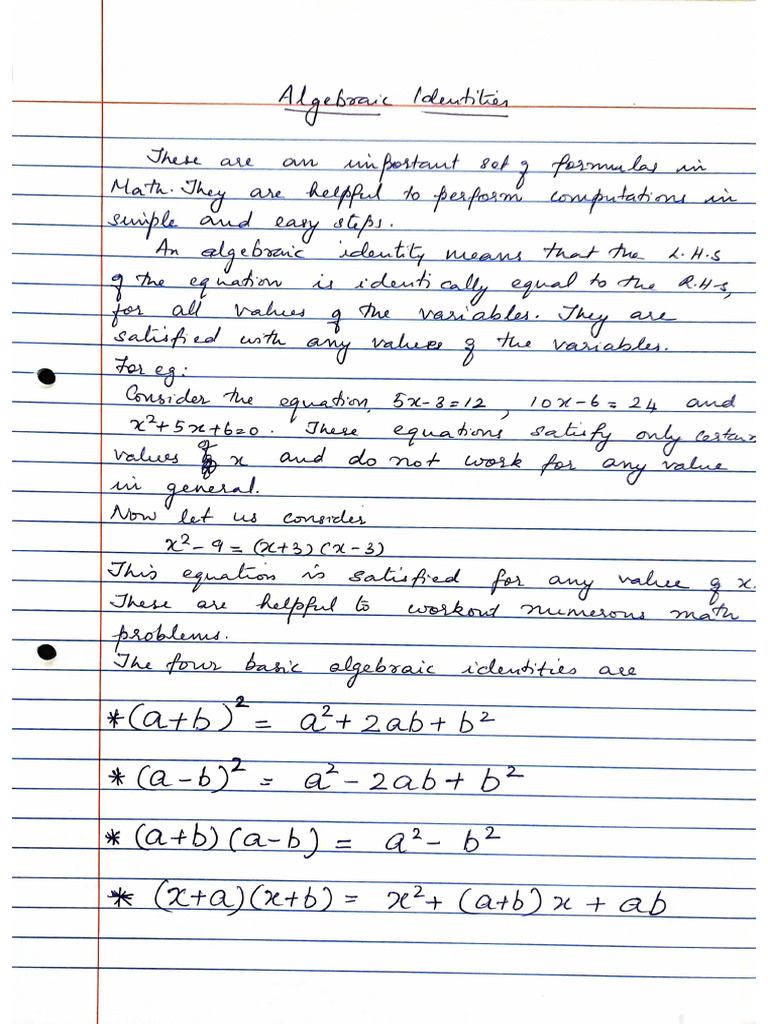 Algebraic Identities
These are an important set of formulas in
Math. They are helpful to perform computations in
simple and easy steps.
An algebraic identity means that the L.H.S
of the equation is identically equal to the R.H.S,
for all values of the variables. They are
satisfied with any values of the variables.
For eg:
Consider the equation, 5x-3=12, 10x-6=24 and
x²+5x+6=0. These equations satisfy only certain
values of x and do not work for any value
in general.
Now let us consider
x²-9=(x+3)(x-3)
This equation is satisfied for any value of x.
These are helpful to workout numerous math
problems.
The four basic algebraic identities are
*(a+b)² = a²+2ab+b²
*(a-b)² = a²-2ab+b²
*(a+b)(a-b) = a²-b²
*(x+a)(x+b) = x²+(a+b)x+ab